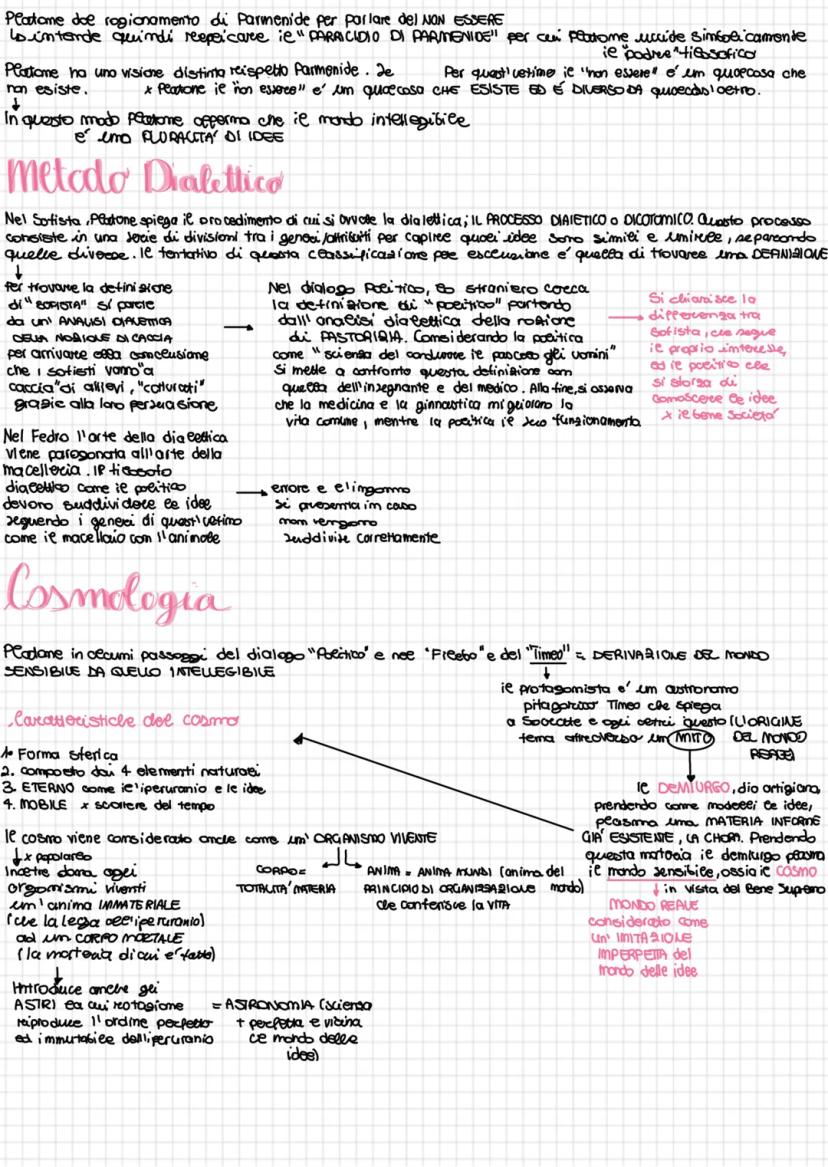 Platone dal ragionamento di Parmenide per parlare del NON ESSERE
Lo intende quindi replicare il "PARRICIDIO DI PARMENIDE" per cui Platone uccide simbolicamente
il "padre" filosofico
Platone ha una visione distinta rispetto Parmenide. Se Per quest'ultimo il "non essere" é un qualcosa che
non esiste. x Platone il "non essere" é un qualcosa CHE ESISTE ED É DIVERSO DA qualcos'altro.
↓
In questo modo Platone afferma che il mondo intellegibile
é una PLURALITA' DI IDEE
Metodo Dialettico
Nel Sofista, Platone spiega il procedimento di cui si avvale la dialettica; IL PROCESSO DIAIETICO o DICOTOMICO. Questo processo
consiste in una serie di divisioni tra i generi/attributi per capire quali idee sono simili e unirle, separando
quelle diverse. Il tentativo di questa classificazione per esclusione é quella di trovare una DEFINIZIONE
↓
Per trovare la definizione
di "SOFISTA" si parte
da un' ANALISI DIALETTICA
DELLA NOZIONE DI CACCIA
per arrivare alla conclusione
che i sofisti vanno "a
caccia" di allievi, "catturati"
grazie alla loro persuasione
→
Nel dialogo Politico, lo straniero cerca
la definizione di "politico" partendo
dall'analisi dialettica della nozione
di PASTORIZIA. Considerando la politica
come "scienza del condurre il pascolo gli uomini"
si mette a confronto questa definizione con
quella dell'insegnante e del medico. Alla fine, si osserva
che la medicina e la ginnastica migliorano la
vita comune, mentre la politica il suo funzionamento
→
Si chiarisce la
differenza tra
sofista, che segue
il proprio interesse,
ed il politico che
si sforza di
conoscere le idee
x il bene società
Nel Fedro l'arte della dialettica
viene paragonata all'arte della
macelleria. Il filosofo
dialettico come il politico
devono suddividere le idee
seguendo i generi di quest'ultimo
come il macellaio con l'animale
→
errore e l'inganno
si presenta in caso
non vengono
suddivise correttamente
Cosmologia
Platone in alcuni passaggi del dialogo "Politico" e nel "Filebo" e del "Timeo" = DERIVAZIONE DEL MONDO
SENSIBILE DA QUELLO INTELLEGIBILE
↓
il protagonista é un astronomo
pitagorico Timeo che spiega
a Socrate e agli altri questo (L'ORIGINE
tema attraverso un MITO DEL MONDO
REALE)
Caratteristiche del cosmo
1. Forma sferica
2. composto dai 4 elementi naturali
3. ETERNO come l'iperuranio e le idee
4. MOBILE x scorrere del tempo
Il DEMIURGO, dio artigiano,
prendendo come modelli le idee,
plasma una MATERIA INFORME
GIÀ ESISTENTE, LA CHORA. Prendendo
questa materia il demiurgo plasma
il mondo sensibile, ossia il COSMO
↓ in vista del Bene Supremo
MONDO REALE
considerato come
un' IMITAZIONE
IMPERFETTA del
mondo delle idee
Il cosmo viene considerato anche come un' ORGANISMO VIVENTE
CORPO =
TOTALITA' MATERIA
ANIMA = ANIMA MUNDI (anima del
PRINCIPIO DI ORGANIZZAZIONE mondo)
che conferisce la VITA
↓ x popolarlo
Inoltre dona agli
organismi viventi
un'anima IMMATERIALE
(che la lega all'iperuranio)
ad un CORPO MORTALE
(la materia di cui é fatto)
↓
Introduce anche gli
ASTRI la cui rotazione
riproduce l'ordine perfetto
ed immutabile dell'iperuranio
= ASTRONOMIA (scienza
+ perfetta e vicina
al mondo delle
idee)